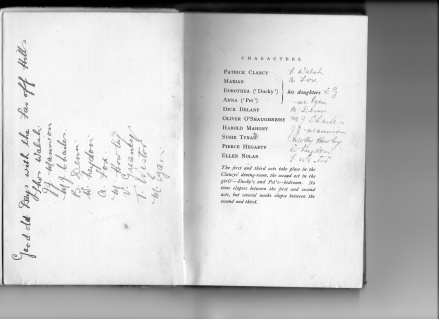 Good old Days with the Far off Hills
Thos Walsh
JJ Mannion
MJ Charles
B. Dunn
D. Haydon
A Fox
M. Howley
T. Greanby
T. Weston
M Egan
CHARACTERS
PATRICK CLANCY T Walsh
MARIAN A Fox
DOROTHEA ("Ducky") his daughters T. G
ANNA ("Pet") M. Egan
DICK DELANY B. Dunn
OLIVER O'SHAUGHNESSY MJ Charles
HAROLD MAHONY JJ Mannion
SUSIE TYNAN Howley
PIERCE HEGARTY D. Haydon
ELLEN NOLAN T Weston
The first and third acts take place in the
Clancys' dining-room, the second act in the
girls'—Ducky's and Pet's—bedroom. No
time elapses between the first and second
acts, but several weeks elapse between the
second and third.